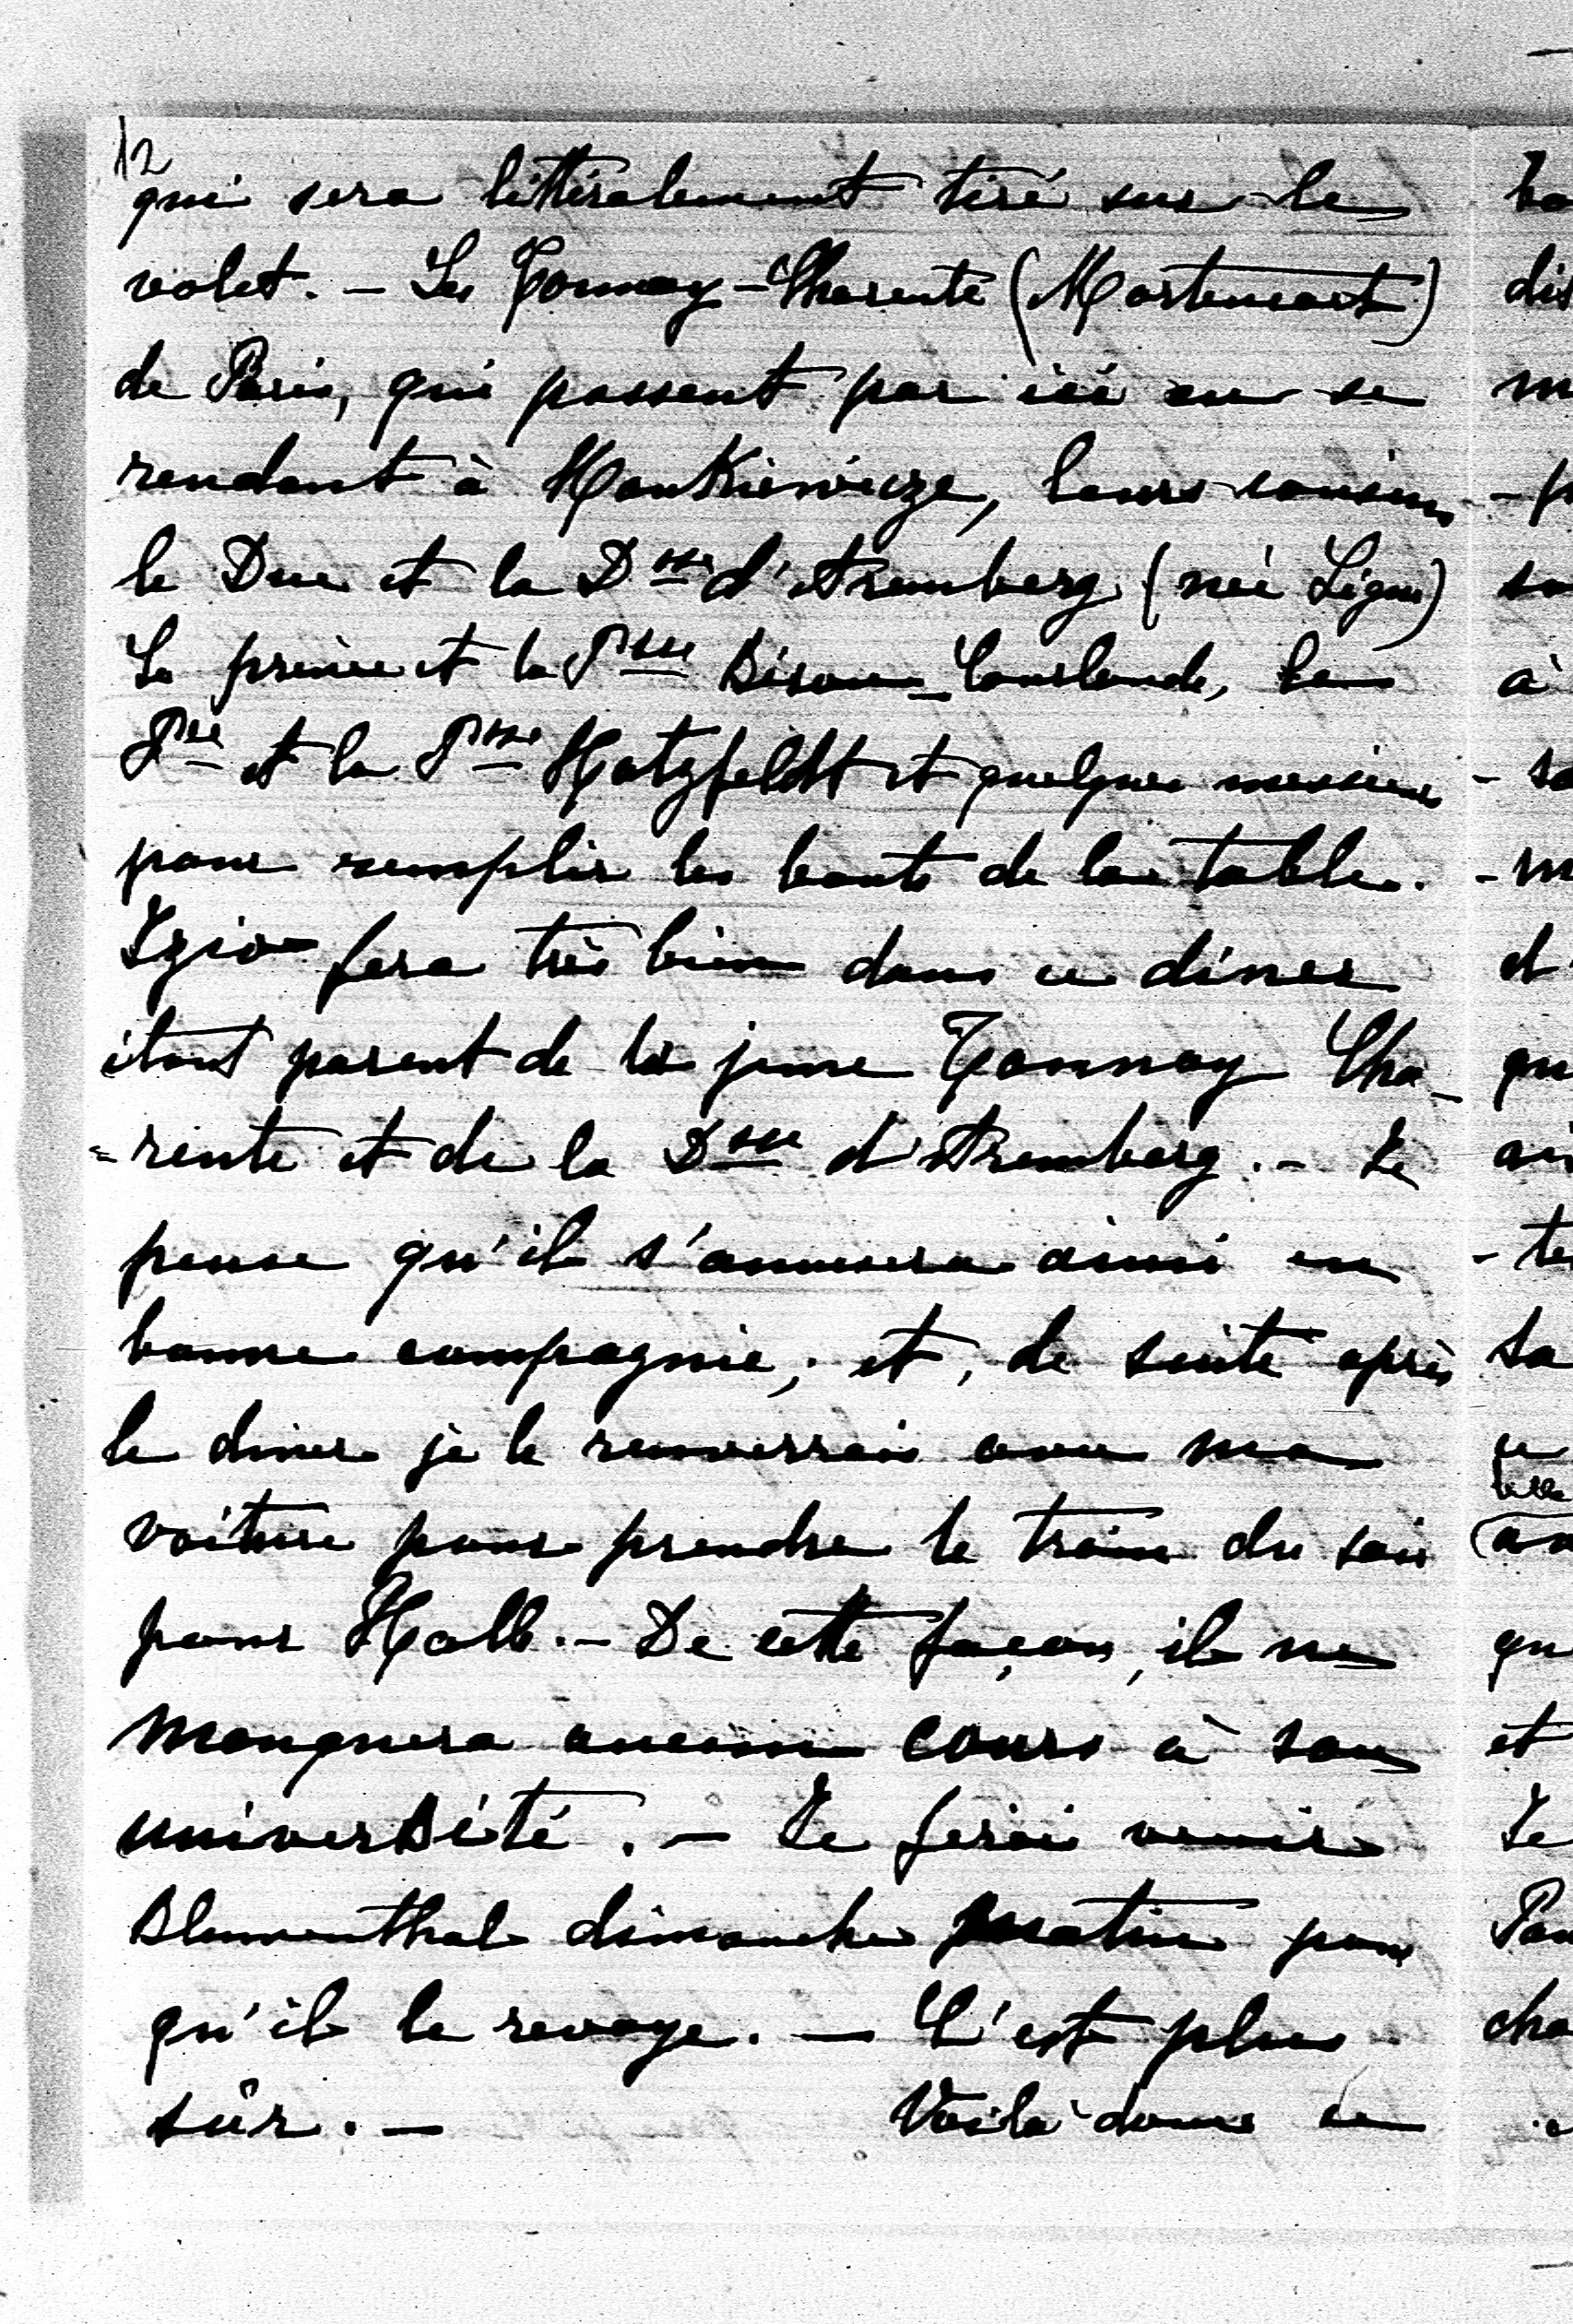 12
qui sera littéralement tiré sur le
volet. — Les Tonnay-Charente (Mortemart)
de Paris, qui passent par ici en se
rendant à Mankiewicze, leurs cousins
le Duc et la Dsse d'Aremberg (née Ligne)
Le prince et la Psse Biron-Courlande, le
Pce et la Psse Hatzfeldt et quelques messieurs
pour remplir les bouts de la table.
Izio fera très bien dans ce diner
étant parent de la jeune Tonnay Cha_
=rente et de la Dsse d'Aremberg. — Je
pense qu'il s'amusera ainsi en
bonne compagnie; et, de suite après
le diner je le renverrai avec ma
voiture pour prendre le train du soir
pour Hall. — De cette façon, il ne
manquera aucun cours à son
université. — Je ferai venir
Blumenthal dimanche matin pour
qu'il le revoye. — C'est plus
sûr. — Voilà donc ce